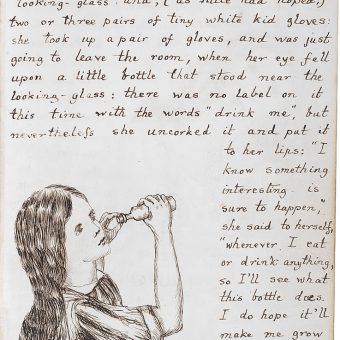 looking-glass: and, (as Alice had hoped,)
two or three pairs of tiny white kid gloves:
she took up a pair of gloves, and was just
going to leave the room, when her eye fell
upon a little bottle that stood near the
looking-glass: there was no label on it
this time with the words "drink me," but
nevertheless she uncorked it and put it
to her lips: "I
know something
interesting is
sure to happen,"
she said to herself,
"whenever I eat
or drink anything,
so I'll see what
this bottle does.
I do hope it'll
make me grow